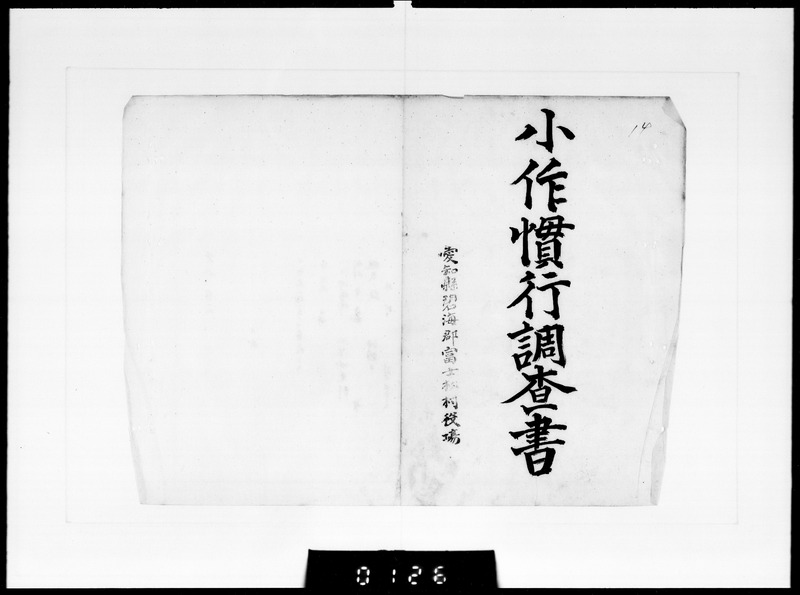 小作慣行調査書
愛知縣碧海郡富士松村役場
14
0126